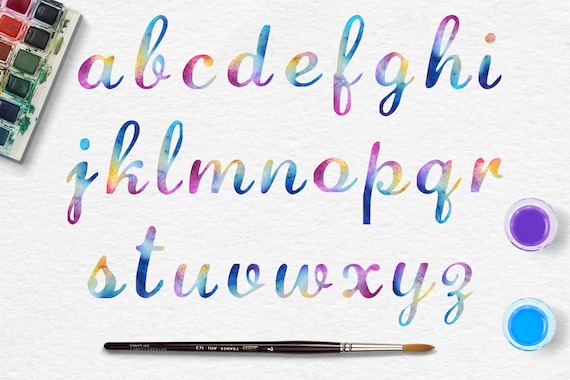 abcdefghi
jklmnopqr
stuvwxyz
7